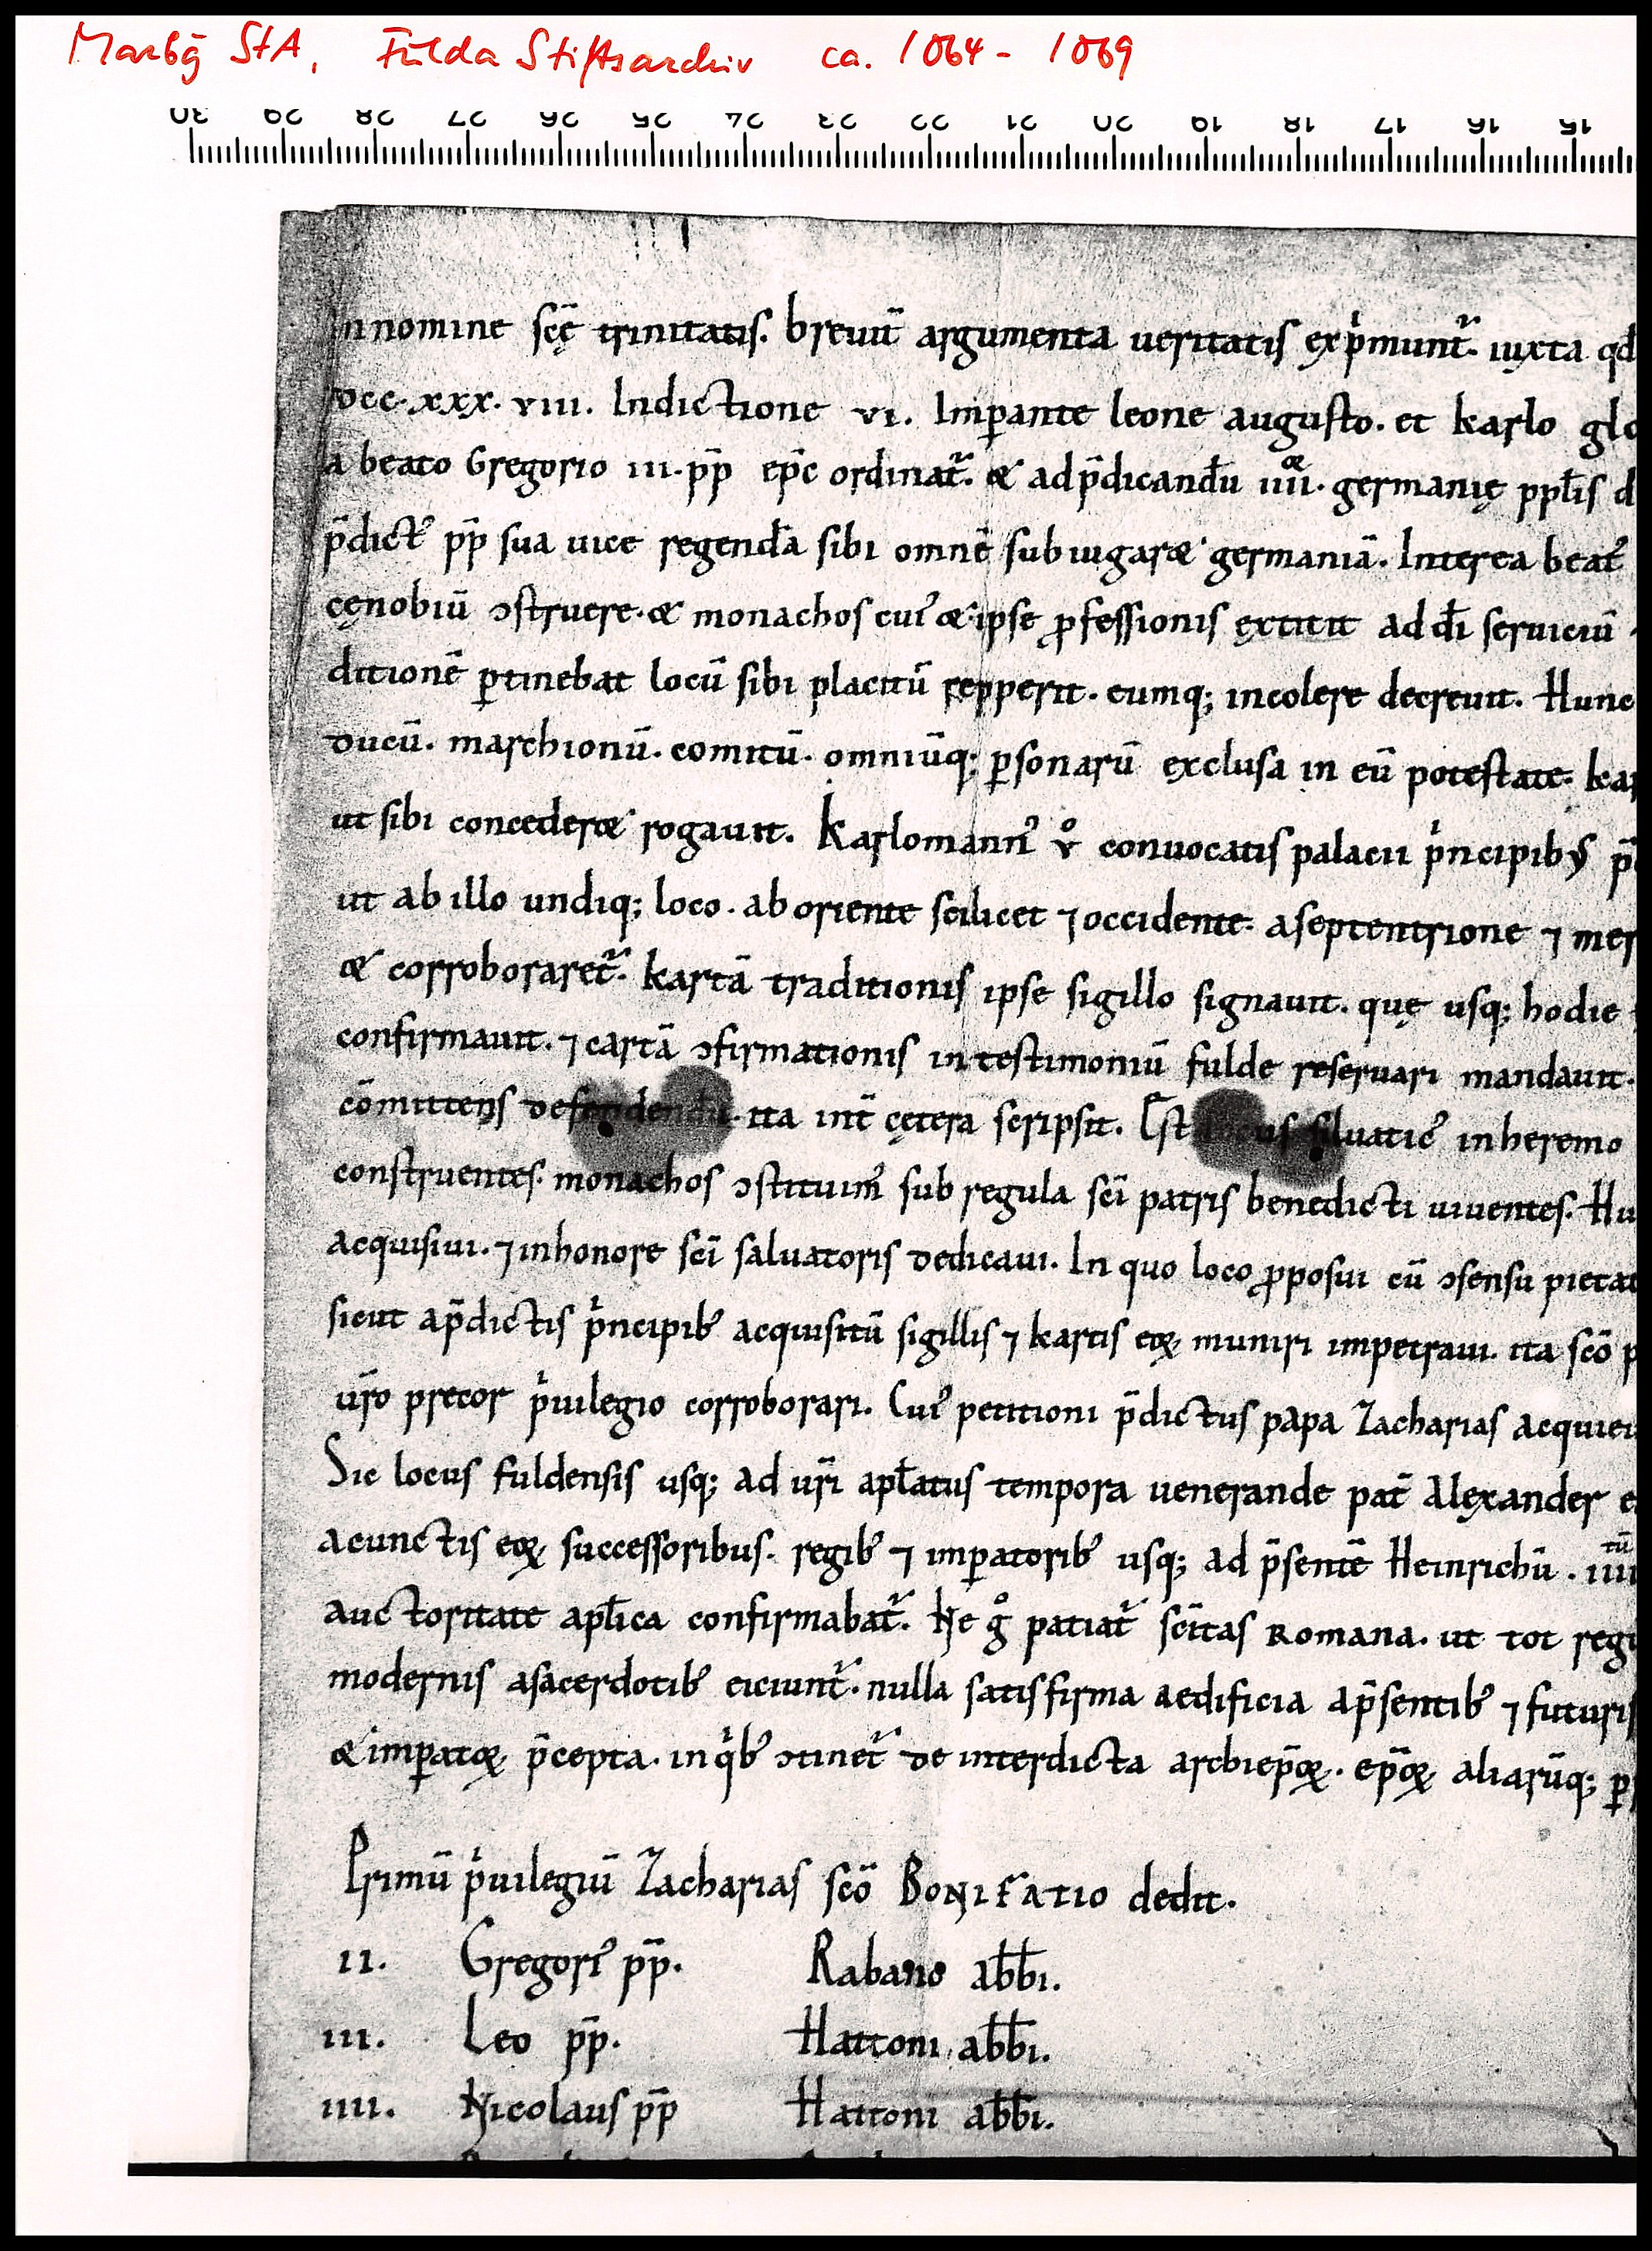 Marbg̃ StA, Fulda Stiftsarchiv ca. 1064 - 1069
30 29 28 27 26 25 24 23 22 21 20 19 18 17 16 15
In nomine scę̄ trinitatis. breuit̄ argumenta ueritatis exp̍munt᷑. iuxta qd̄
DCC.XXX.VIII. Indictione VI. Imꝑante leone augusto. et karlo glo
a beato Gregorio III. pp̄ ep̄c ordinat᷑. & ad p̄dicandū IIII. germanię pplīs d
p̄dict᾽ pp̄ sua uice regendā sibi omnē subiugar& germaniā. Interea beat᾽
cęnobiū ↄstruere. & monachos cui᾽ & ipse ꝓfessionis extitit ad dī seruiciū.
ditionē ꝑtinebat locū sibi placitū repperit. eumq; incolere decreuit. Hunc
ducū. marchionū. comitū. omniūq; ꝑsonarū exclusa in eū potestate. kar
ut sibi conceder& rogauit. Karlomann᾽ v̊ conuocatis palacii p̍ncipib; p̄
ut ab illo undiq; loco. ab oriente scilicet ⁊ occidente. a septentrione ⁊ mer
& corroboraret᷑. kartā traditionis ipse sigillo signauit. quę usq; hodie
confirmauit. ⁊ cartā ↄfirmationis in testimoniū fulde reseruari mandauit.
cōmittens defendendū. ita int̄ cętera scripsit. Est locus siluatic᾽ in heremo
construentes. monachos ↄstituim᾽ sub regula scī patris benedicti uiuentes. Hu
acquisiui. ⁊ in honore scī saluatoris dedicaui. In quo loco ꝓposui cū ↄsensu pietat
sicut a p̄dictis p̍ncipib᾽ acquisitū sigillis ⁊ kartis eoꝝ muniri impetraui. ita scō p
ur̄o precor p̍uilegio corroborari. Cui᾽ petitioni p̄dictus papa Zacharias acquieu
Sic locus fuldensis usq; ad ur̄i apłatus tempora uenerande pat̄ Alexander e
a cunctis eoꝝ successoribus. regib᾽ ⁊ imꝑatorib᾽ usq; ad p̄sentē Heinrichū. IIII tū
auctoritate apłica confirmabat᷑. Ne g̊ patiat᷑ scītas Romana. ut tot regu
modernis a sacerdotib᾽ eiciunt᷑. nulla satis firma aedificia a p̄sentib᾽ ⁊ futuris
& imꝑatoꝝ p̄cepta. in q̍b᾽ ↄtinet᷑ de interdicta archiep̄oꝝ. ep̄oꝝ aliarūq; ꝑs
Primū p̍uilegiū Zacharias scō BONIFATIO dedit.
II. Gregori᾽ pp̄. Rabano abb̄i.
III. Leo pp̄. Hattoni abb̄i.
IIII. Nicolaus pp̄ Hattoni abb̄i.